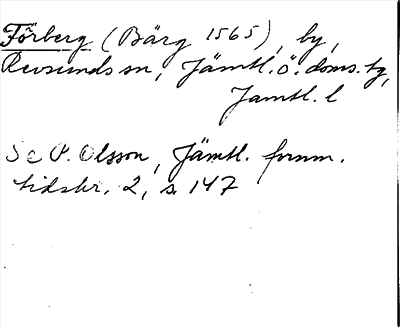 Förberg (Bärg 1565), by,
Revsunds sn, Jämtl. ö. doms. tg,
Jämtl. l
Se P. Olsson, Jämtl. fornm.
tidskr. 2, s. 147